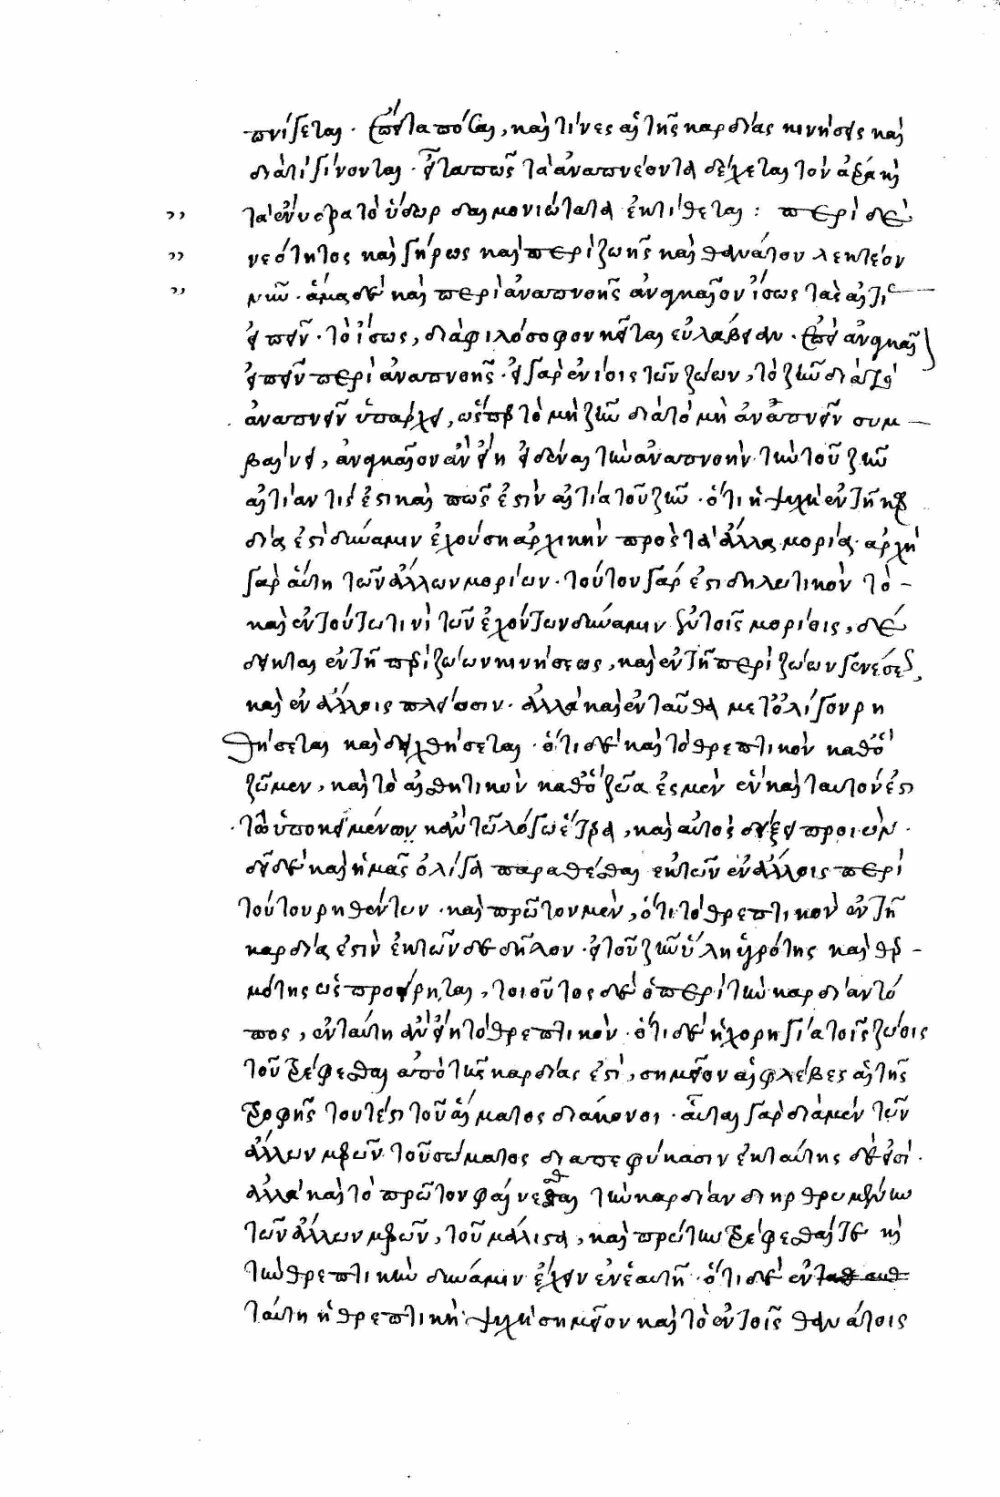 πνίγεται· ἔπειτα πόσαι, καὶ τίνες αἱ τῆς καρδίας κινήσεις καὶ
διατί γίνονται· εἶτα πῶς τὰ ἀναπνέοντα δέχεται τὸν ἀέρα καὶ
τὰ ἔνυδρα τὸ ὕδωρ δαιμονιώτατα ἐκτίθεται: περὶ δὲ
νεότητος καὶ γήρως καὶ περὶ ζωῆς καὶ θανάτου λεκτέον
νῦν· ἅμα δὲ καὶ περὶ ἀναπνοῆς ἀναγκαῖον ἴσως τὰς αἰτί
εἰπεῖν· τὸ ἴσως, διὰ φιλόσοφον κεῖται εὐλάβειαν· ἐπεὶ ἀναγκαῖ
εἰπεῖν περὶ ἀναπνοῆς· εἰ γὰρ ἐνίοις τῶν ζώων, τὸ ζῆν διὰ τὸ
ἀναπνεῖν ὑπάρχει, ὥσπερ τὸ μὴ ζῆν διὰ τὸ μὴ ἀναπνεῖν συμ
βαίνει, ἀναγκαῖον ἂν εἴη εἰδέναι τὴν ἀναπνοὴν τὴν τοῦ ζῆν
αἰτίαν τίς ἐστι καὶ πῶς ἐστὶν αἰτία τοῦ ζῆν· ὅτι ἡ ψυχὴ ἐν τῇ καρ
δίᾳ ἐστὶ δύναμιν ἔχουσα ἀρχικὴν πρὸς τὰ ἄλλα μορία· ἀρχὴ
γὰρ αὕτη τῶν ἄλλων μορίων· τούτου γάρ ἐστι δηλωτικὸν τὸ
καὶ ἐν τούτῳ τινὶ τῶν ἐχόντων δύναμιν ἐν τοῖς μορίοις, δέ
δεικται ἐν τῇ περὶ ζώων κινήσεως, καὶ ἐν τῇ περὶ ζώων γενέσε
καὶ ἐν ἄλλοις πλείοσιν· ἀλλὰ καὶ ἐνταῦθα μετ' ὀλίγον ῥη
θήσεται καὶ δειχθήσεται· ὅτι δὲ καὶ τὸ θρεπτικὸν καθὸ
ζῶμεν, καὶ τὸ αἰσθητικὸν καθὸ ζῶα ἐσμὲν ἓν καὶ ταυτόν ἐστι
τῷ ὑποκειμένῳ κἂν τῷ λόγῳ ἕτερα, καὶ αὐτὸς δείξει προιών·
δεῖ δὲ καὶ ἡμᾶς ὀλίγα παραθέσθαι ἐκ τῶν ἐν ἄλλοις περὶ
τούτου ῥηθέντων· καὶ πρῶτον μὲν, ὅτι τὸ θρεπτικὸν ἐν τῇ
καρδίᾳ ἐστὶν ἐκ τῶνδε δῆλον· εἰ τοῦ ζῆν ὕλη ὑγρότης καὶ θερ
μότης ὡς προείρηται, τοιοῦτος δὲ ὁ περὶ τὴν καρδίαν τό
πος, ἐν ταύτῃ ἂν εἴη τὸ θρεπτικὸν· ὅτι δὲ ἡ χορηγία τοῖς ζώοις
τοῦ τρέφεσθαι ἀπὸ τῆς καρδίας ἐστὶ, σημεῖον αἱ φλέβες αἱ τῆς
τροφῆς τουτέστι τοῦ αἵματος διάκονοι· αὗται γὰρ διὰ μὲν τῶν
ἄλλων μερῶν τοῦ σώματος διαπεφύκασιν ἐκ ταύτης δέ εἰσι·
ἀλλὰ καὶ τὸ πρῶτον φαίνεσθαι τὴν καρδίαν διηρθρωμένην
τῶν ἄλλων μερῶν, τοῦ μάλιστα, καὶ πρώτην τρέφεσθαί τε καὶ
τὴν θρεπτικὴν δύναμιν ἔχειν ἐν ἑαυτῇ· ὅτι δὲ ἐν
ταύτῃ ἡ θρεπτικὴ ψυχὴ σημεῖον καὶ τὸ ἐν τοῖς θανάτοις